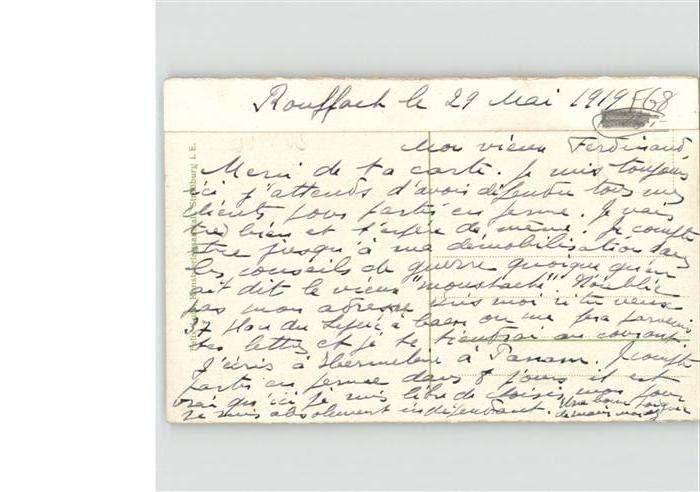 Rouffach le 29 Mai 1919
Mon vieux Ferdinand,
Merci de ta carte. Je suis toujours
ici j'attends d'avoir défendu tous mes
clients pour partir en perme. Je vais
très bien et t'espère de même. Je compte
être jusqu'à ma démobilisation dans
les conseils de guerre quoique qu'en
ait dit le vieux "moustache". N'oublie
pas mon adresse écris moi si tu veux
37 Rue du on me fera parvenir
tes lettres et je te tiendrai au courant.
J'écris à à Panam. Je compte
partir en perme dans 8 jours il est
vrai qu'ici je suis libre de
je suis absolument indépendant. Une bonne poignée
de main